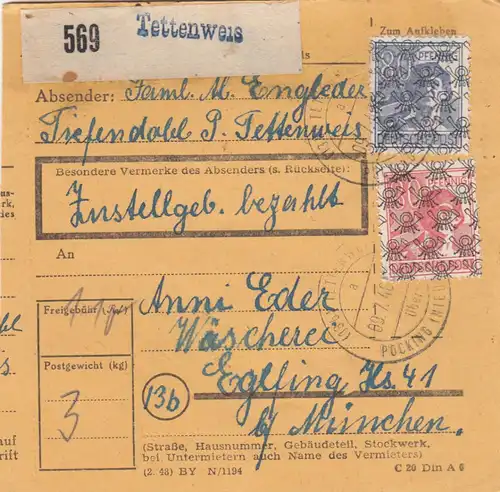 569 Tettenweis
Zum Aufkleben
Absender: Faml. M. Engleder
Tiefendobl P. Tettenweis
Besondere Vermerke des Absenders (s. Rückseite):
Zustellgeb. bezahlt
An
Anni Eder
Wäscherei
Eglfing Hs. 41
b/ München.
Freigebühr
Postgewicht (kg)
3
13b
PFENNIG
PFENNIG
POCKING
(Straße, Hausnummer, Gebäudeteil, Stockwerk,
bei Untermietern auch Name des Vermieters)
(2. 48) BY N/1194
C 20 Din A 6